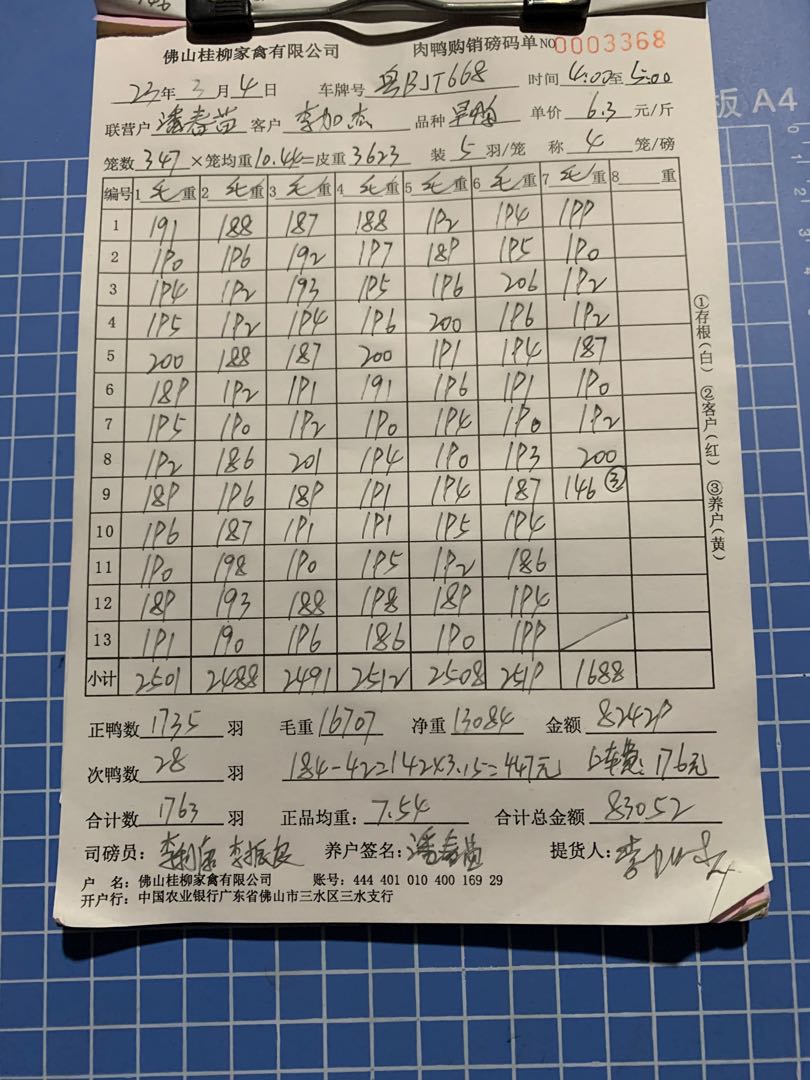 佛山桂柳家禽有限公司 肉鸭购销磅码单 NO 0003368
23年 3月 4日 车牌号 粤BJT668 时间 4:00至5:00
联营户 潘春苗 客户 李加杰 品种 单价 6.3 元/斤
笼数 347 ×笼均重 10.44=皮重 3623 装 5 羽/笼 称 4 笼/磅
编号 1 毛重 2 毛重 3 毛重 4 毛重 5 毛重 6 毛重 7 毛重 8 重
1 191 188 187 188 192 194 199
2 190 196 192 197 189 195 190
3 194 192 193 195 196 206 192
4 195 192 194 196 200 196 192
5 200 188 187 200 191 194 187
6 189 192 191 191 196 191 190
7 195 190 192 190 194 190 192
8 192 186 201 194 190 193 200
9 189 196 189 191 194 187 146 ③
10 196 187 191 191 195 194
11 190 198 190 195 192 186
12 189 193 188 198 189 194
13 191 190 196 186 190 199
小计 2501 2488 2491 2512 2508 2519 1688
①存根(白) ②客户(红) ③养户(黄)
正鸭数 1735 羽 毛重 16707 净重 13084 金额 82429
次鸭数 28 羽 184-42=142×3.15=447元 上车费:176元
合计数 1763 羽 正品均重: 7.54 合计总金额 83052
司磅员: 养户签名: 潘春苗 提货人:
户 名: 佛山桂柳家禽有限公司 账号: 444 401 010 400 169 29
开户行: 中国农业银行广东省佛山市三水区三水支行
板 A4